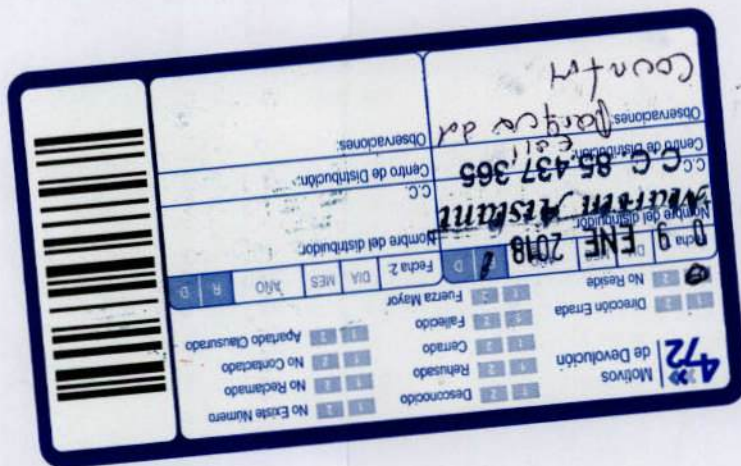 472
Motivos
de Devolución
1 2 Desconocido
1 2 Rehusado
1 2 Cerrado
1 2 Fallecido
1 2 Fuerza Mayor
1 2 No Existe Número
1 2 No Reclamado
1 2 No Contactado
1 2 Apartado Clausurado
1 2 Dirección Errada
No Reside
Fecha 2: DIA MES AÑO R D
09 ENE 2018 R D
Nombre del distribuidor:
Nombre del distribuidor:
C.C. 85.437.365
C.C.
Centro de Distribución:
Centro de Distribución:
Observaciones:
Observaciones:
Country